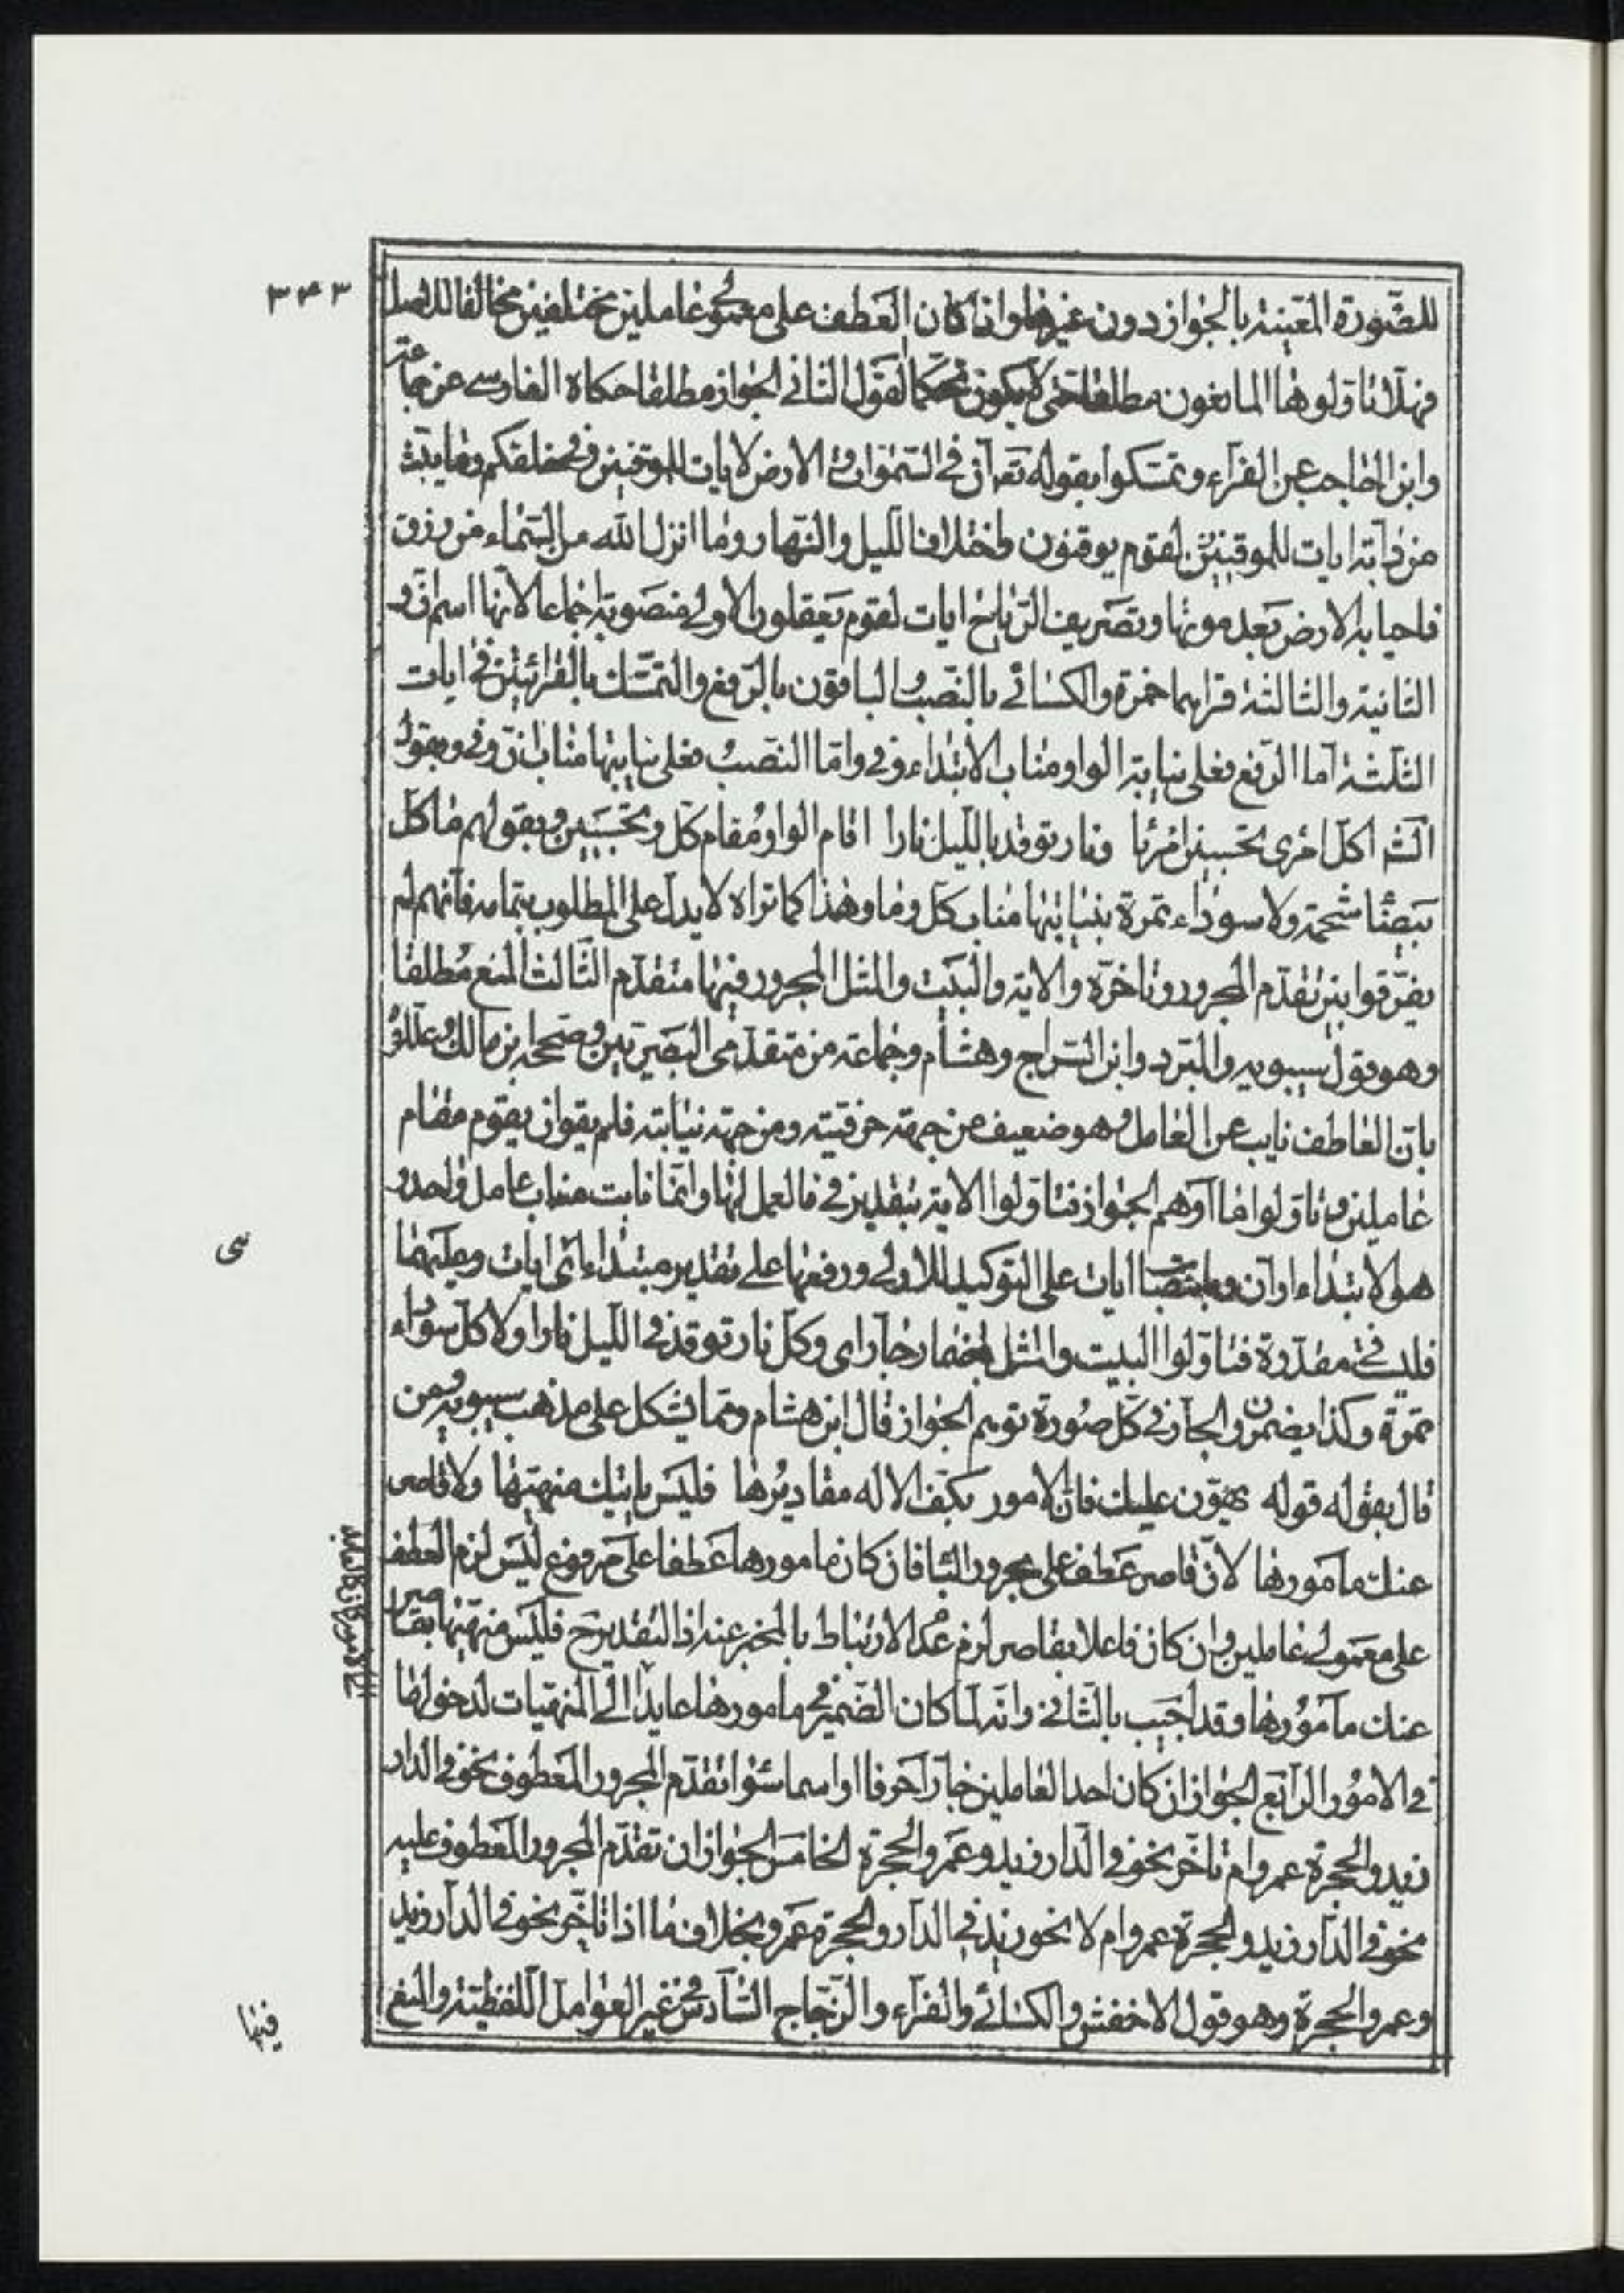 ٣٤٣
للصّورة المعيّنة بالجواز دون غيرها واذا كان العطف على معمولى عاملين مختلفين مخالفا للاصل
فهلا تاولوها المانعون مطلقا حتى لا يكون تحكما القول الثانى الجواز مطلقا حكاه الفارسى عن جماعة
وابن الحاجب عن الفرّاء وتمسّكوا بقوله تعـ انّ فى السّموات والارض لايات للمؤمنين وفى خلقكم وما يبثّ
من دابّة ايات لقوم يوقنون واختلاف اللّيل والنّهار وما انزل الله من السّماء من رزق
فاحيا به الارض بعد موتها وتصريف الرّياح ايات لقوم يعقلون الاولى منصوبة اجماعا لانها اسم انّ و
الثانية والثالثة قراهما حمزة والكسائى بالنّصب والباقون بالرّفع والتمسّك بالقرائتين فى ايات
الثلثة امّا الرّفع فعلى نيابة الواو مناب الابتداء وفى وامّا النّصب فعلى نيابتها مناب انّ وفى وبقوله
اكلّ امرى تحسبين امرئا ونار توقد بالليل نارا اقام الواو مقام كلّ وتحسبين وبقولهم ما كلّ
بيضاء شحمة ولا سوداء تمرة بنيابتها مناب كلّ وما وهذا كما تراه لا يدلّ على المطلوب بتمامه فانّهم لم
يفرّقوا بين تقدّم المجرور وتاخّره والاية والبيت والمثل المجرور فيها متقدّم الثالث المنع مطلقا
وهو قول سيبويه والمبرّد وابن السّراج وهشام وجماعة من متقدّمى البصريّين وصحّحه ابن مالك وعلّلوه
بانّ العاطف نايب عن العامل وهو ضعيف من جهة حرفيّته ومن جهة نيابته فلم يقو ان يقوم مقام
عاملين وتاوّلوا ما اوهم الجواز فتاوّلوا الاية بتقدير فى فالعمل لها وانّما نابت مناب عامل واحد و
هو الابتداء او انّ وبانتصاب ايات على التوكيد للاولى ورفعها على تقدير مبتداء اى ايات وعليهما
فليست فى مقدّرة فتاوّلوا البيت والمثل باضمار جارّ اى وكلّ نار توقد فى اللّيل نارا ولا كلّ سوداء
تمرة وكذا يضمرون الجارّ فى كلّ صورة توهم الجواز قال ابن هشام وممّا يشكل على مذهب سيبويه ومن
قال بقوله قوله هوّن عليك فانّ الامور بكفّ الاله مقاديرها فليس باتيك منهيّها ولا قاصر
عنك مامورها لانّ قاصر عطف على مجرور البا فان كان مامورها عطفا على مرفوع ليس لزم العطف
على معمولى عاملين وان كان فاعلا بقاصر لزم عدم الارتباط بالمخبر عنه اذ التقدير ح فليس منهيّها بقاصر
عنك مامورها وقد اجيب بالثانى وانّه لمّا كان الضّمير فى مامورها عايدا الى المنهيّات لدخولها
فى الامور الرّابع الجواز ان كان احد العاملين جارّا حرفا او اسما سواء تقدّم المجرور المعطوف نحو فى الدار
زيد والحجرة عمرو ام تاخّر نحو فى الدّار زيد وعمرو الحجرة الخامس الجواز ان تقدّم المجرور المعطوف عليه
نحو فى الدّار زيد والحجرة عمرو ام لا نحو زيد فى الدار والحجرة عمرو بخلاف ما اذا تاخّر نحو فى الدار زيد
وعمرو الحجرة وهو قول الاخفش والكسائى والفرّاء والزّجّاج السّادس فى غير العوامل اللّفظيّة والمنع
فيها